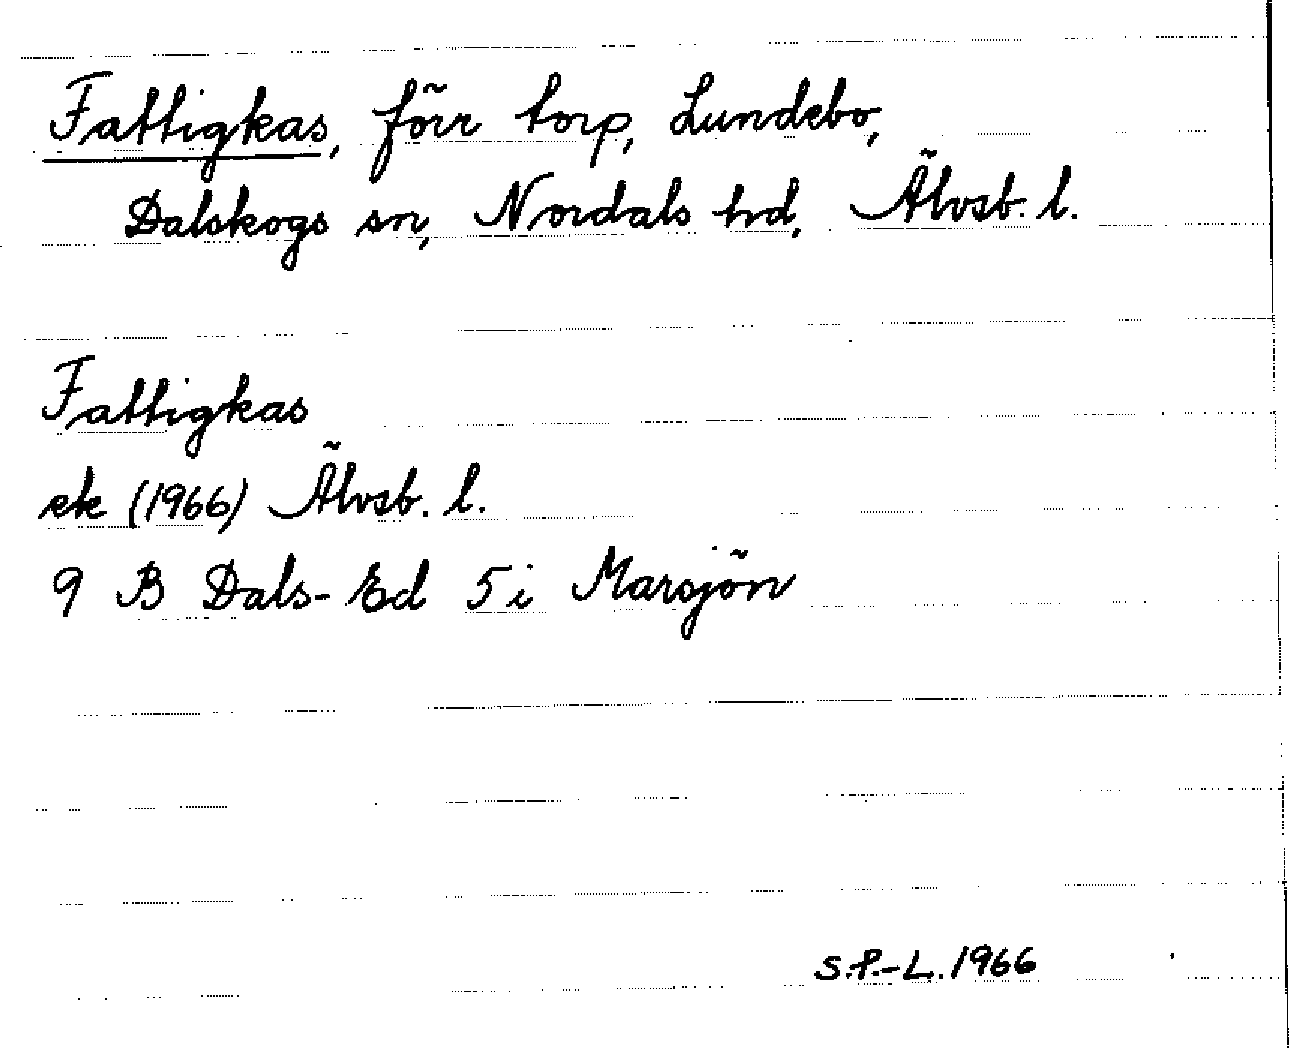 Fattigkas, förr torp, Lundebo,
Dalskogs sn, Nordals hd, Älvsb. l.
Fattigkas
ek (1966) Älvsb. l.
9 B Dals-Ed 5 i Marsjön
S.P.-L. 1966